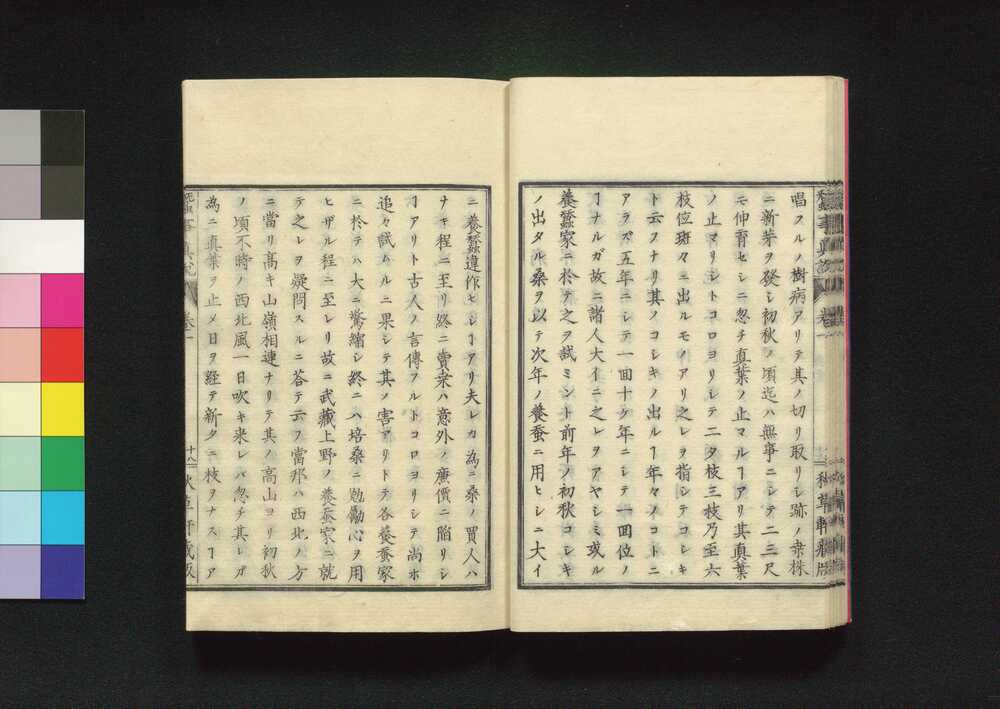 唱スルノ樹病アリテ其ノ切リ取リシ跡ノ桒株
ニ新芽ヲ發シ初秋ノ頃迄ハ無事ニシテ二三尺
モ伸育セシニ忽チ真葉ノ止マルヿアリ其真葉
ノ止マリシトコロヨリシテ二タ枝三枝乃至六
枝位斑々ニ出ルモノアリ之レヲ指シテコシキ
ト云フナリ其ノコシキノ出ルヿ年々イコトニ
アラズ五年ニシテ一囬十ケ年ニシテ一囬位ノ
ヿナルガ故ニ諸人大イニ之レヲアヤシミ或ル
養蠶家ニ於テ之ヲ試ミント前年ノ初秋コシキ
ノ出タル桑ヲ以テ次年ノ養蚕ニ用ヒシニ大イ
ニ養蠶違作セシヿアリ夫レカ為ニ桑ノ買人ハ
ナキ程ニ至リ終ニ賣桒ハ意外ノ廉價ニ陷リシ
ヿアリト古人ノ言傳フルトコロヨリシテ尚ホ
追々試ムルニ果シテ其ノ害アリトテ各養蚕家
ニ於テハ大ニ驚縮シ終ニハ培桑ニ勉勵心ヲ用
ヒザル程ニ至レリ故ニ武藏上野ノ養蚕家ニ就
テ之レヲ疑問スルニ荅テ云フ當邦ハ西北ノ方
ニ當リ髙キ山嶺相連ナリテ其ノ高山ヨリ初秋
ノ頃不時ノ西北風一日吹キ来レバ忽チ其レガ
為ニ真葉ヲ止メ日ヲ経テ新タニ枝ヲナスヿア
十八